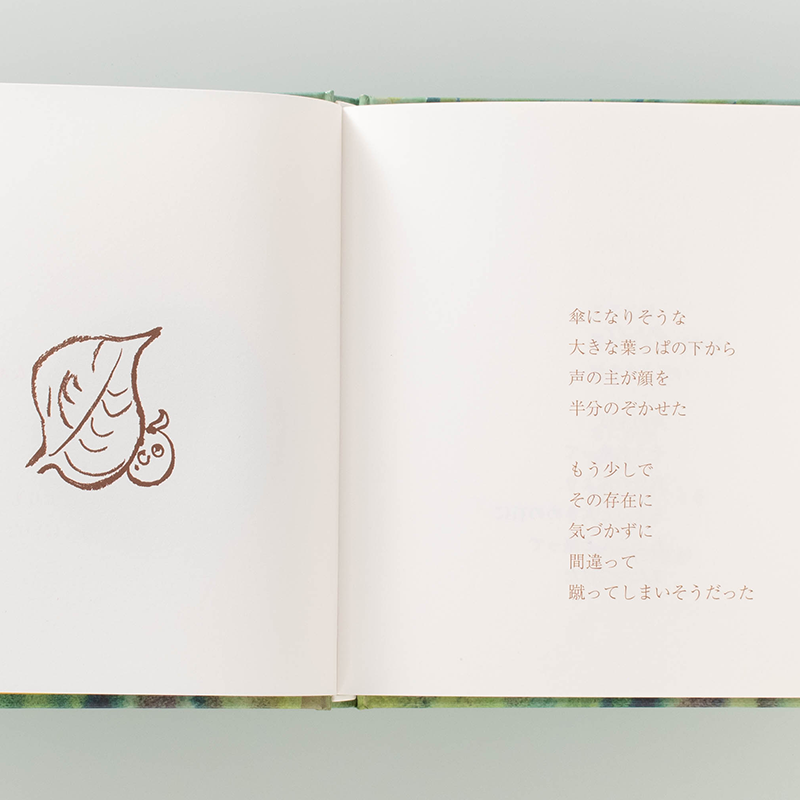 傘になりそうな
大きな葉っぱの下から
声の主が顔を
半分のぞかせた
もう少しで
その存在に
気づかずに
間違って
蹴ってしまいそうだった